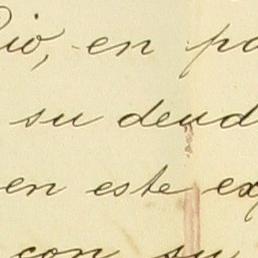 io, en pa
su deud
en este ex
con su